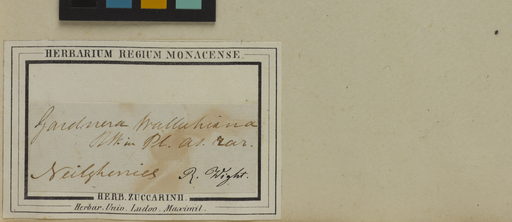 HERBARIUM REGIUM MONACENSE.
Gardnera Wallichiana
Pl. as. rar.
Neilgherries R. Wight.
HERB. ZUCCARINII.
Herbar. Univ. Ludov. Maximil.